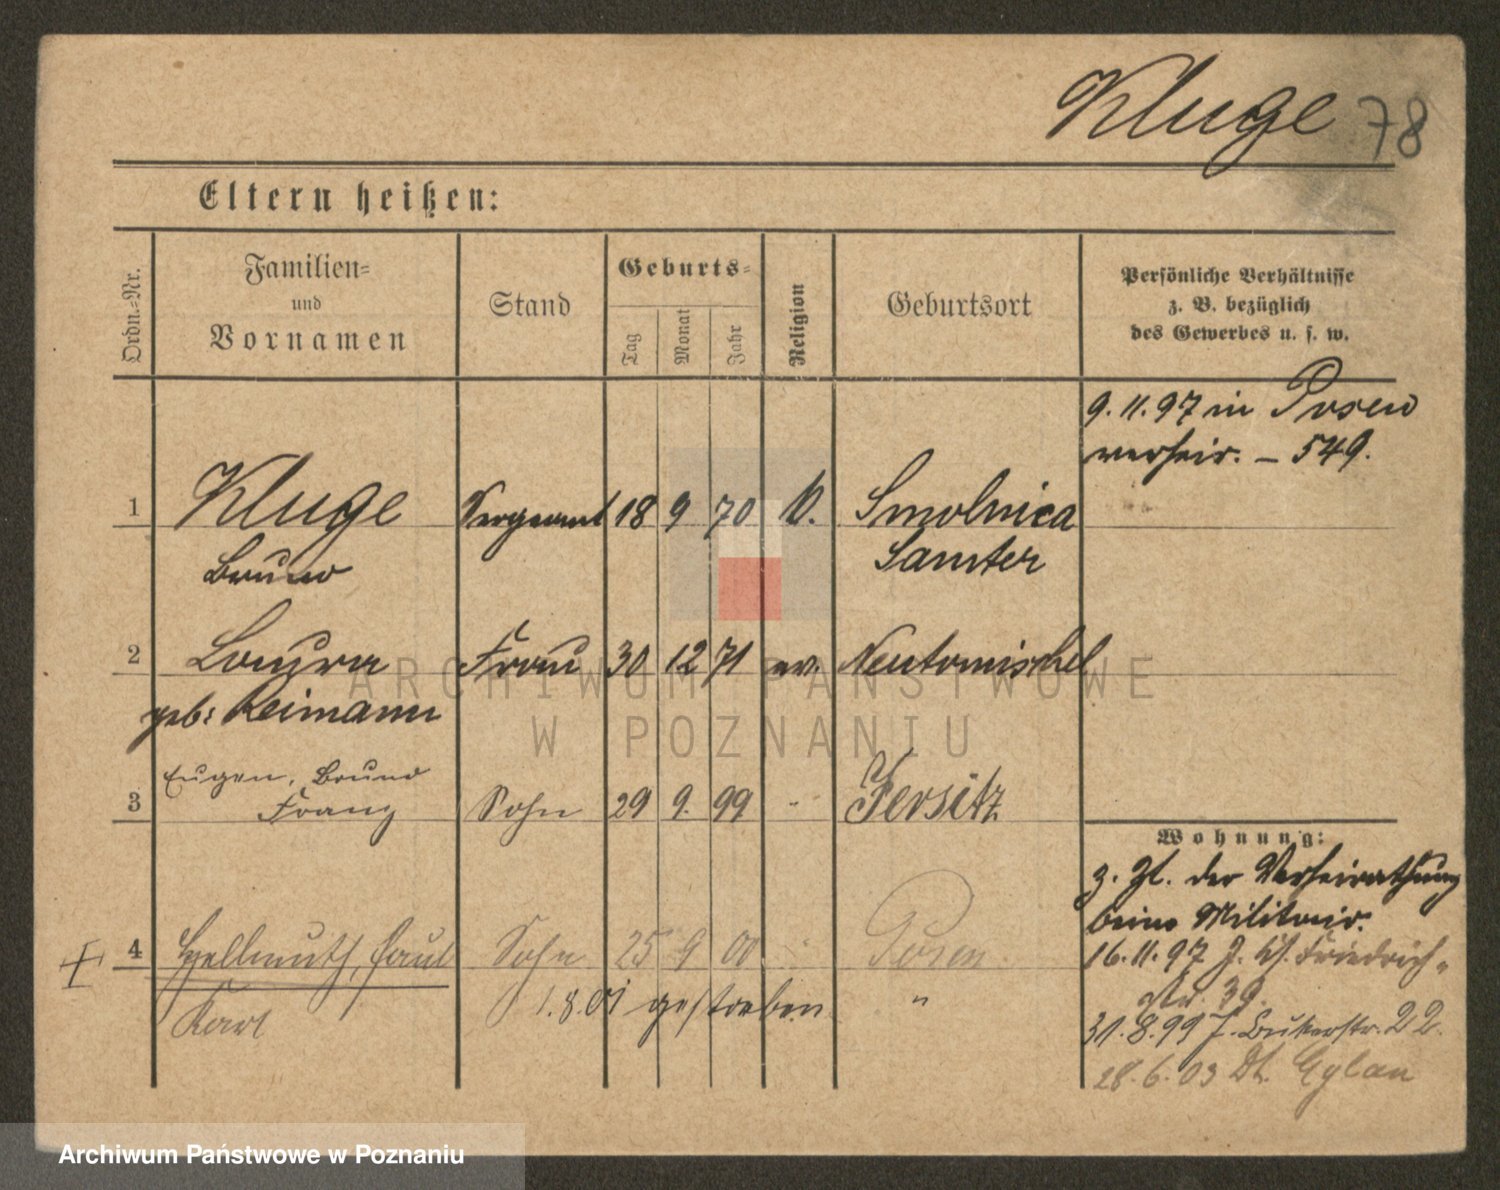 Kluge 78
Eltern heißen:
Ordn.-Nr.
Familien-
und
Vornamen
Stand
Geburts-
Tag
Monat
Jahr
Religion
Geburtsort
Persönliche Verhältnisse
z. B. bezüglich
des Gewerbes u. s. w.
9. 11. 97 in Posen
verheir. – 549.
1 Kluge Sergeant 18 9 70 Smolnica
Bruno Samter
2 Laura Frau 30 12 71 ev. Neutomischel
geb: Reimann
3 Eugen, Bruno
Franz Sohn 29 9. 99 " Jersitz
Wohnung:
z. Zt. der Verheirathung
beim Militair.
4 Hellmuth, Paul Sohn 25 9 00 " Posen
Karl 1.8.01 gestorben "
16.11.97 J. Friedrich-
str. 39.
31.8.99 J. Bukerstr. 22.
28.6.03 Dt. Eylau
ARCHIWUM PAŃSTWOWE
W POZNANIU
Archiwum Państwowe w Poznaniu